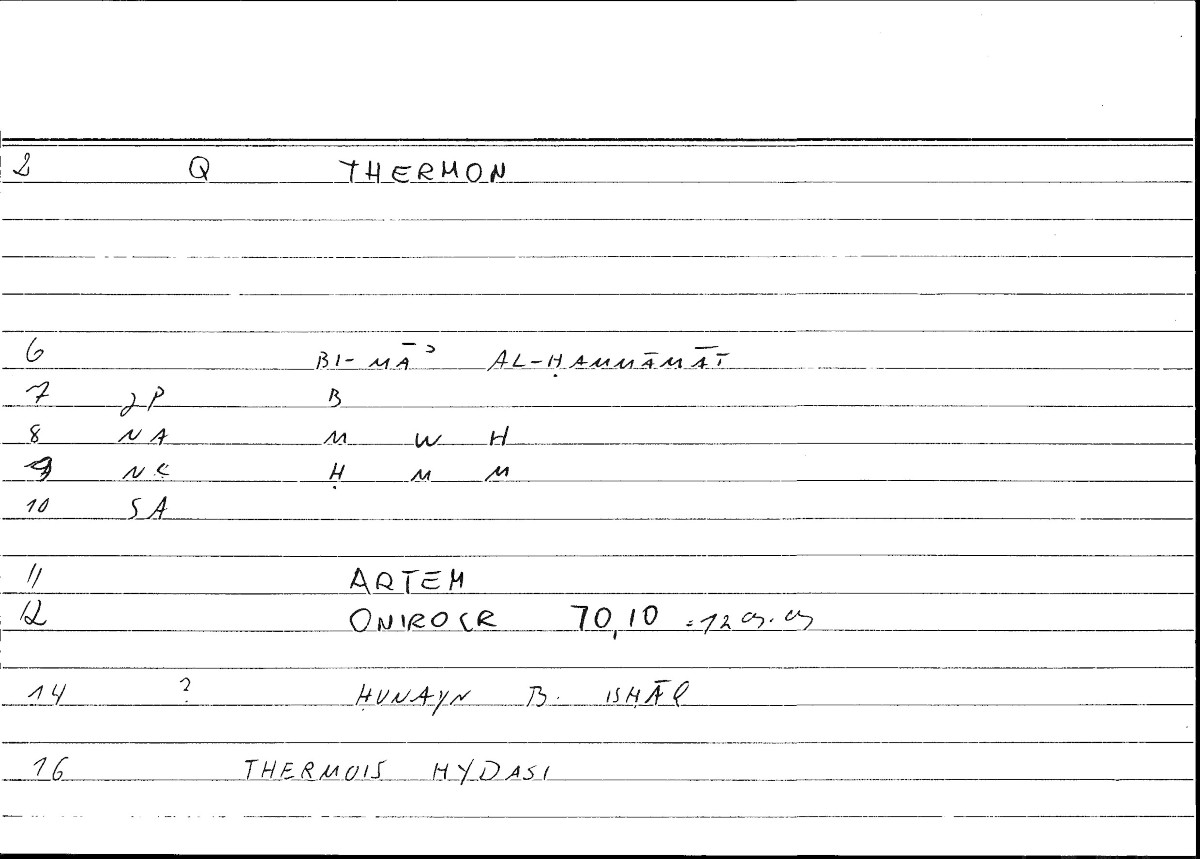 2 Q THERMON
6 BI-MĀʾ AL-ḤAMMĀMĀT
7 JP B
8 NA M W H
9 NC Ḥ M M
10 SA
11 ARTEM
12 ONIROCR 70,10
14 ? ḤUNAYN B. ISḤĀQ
16 THERMOIS HYDASI